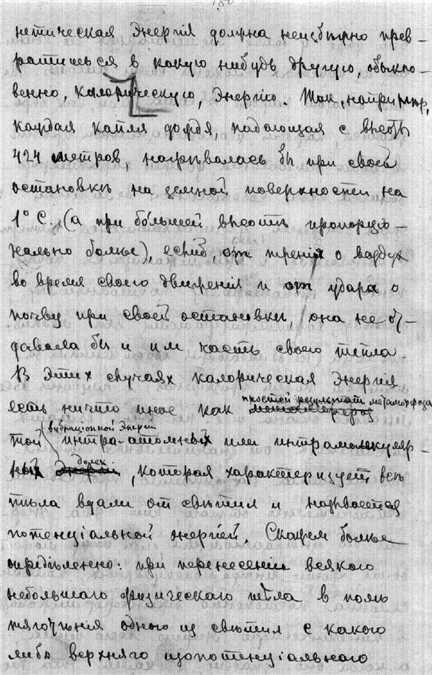 нетическая энергія должна неизбѣжно прев-
ратиться въ какую нибудь другую, обыкно-
венно, калорическую, энергію. Такъ, напримѣръ,
каждая капля дождя, падающая с высоты
424 метров, нагрѣвалась бы при своей
остановкѣ на земной поверхности на
1° С. (а при большей высотѣ пропорціо-
нально болѣе), еслиб, от тренія о воздух
во время своего движенія и от удара о
почву при своей остановкѣ, она не от-
давала бы и им часть своего тепла.
В этих случаях калорическая энергія
есть ничто иное как простой результат метаморфоза
вибраціонной энергіи
той интра-атомных или интрамолекуляр-
ных долек, которая характеризует всѣ
тѣла вдали от свѣтил и называется
потенціальной энергіей. Скажем болѣе
опредѣленно: при перенесеніи всякого
небольшого физического тѣла в полѣ
тяготѣнія одного из свѣтил с какого
либо верхняго изопотенціального